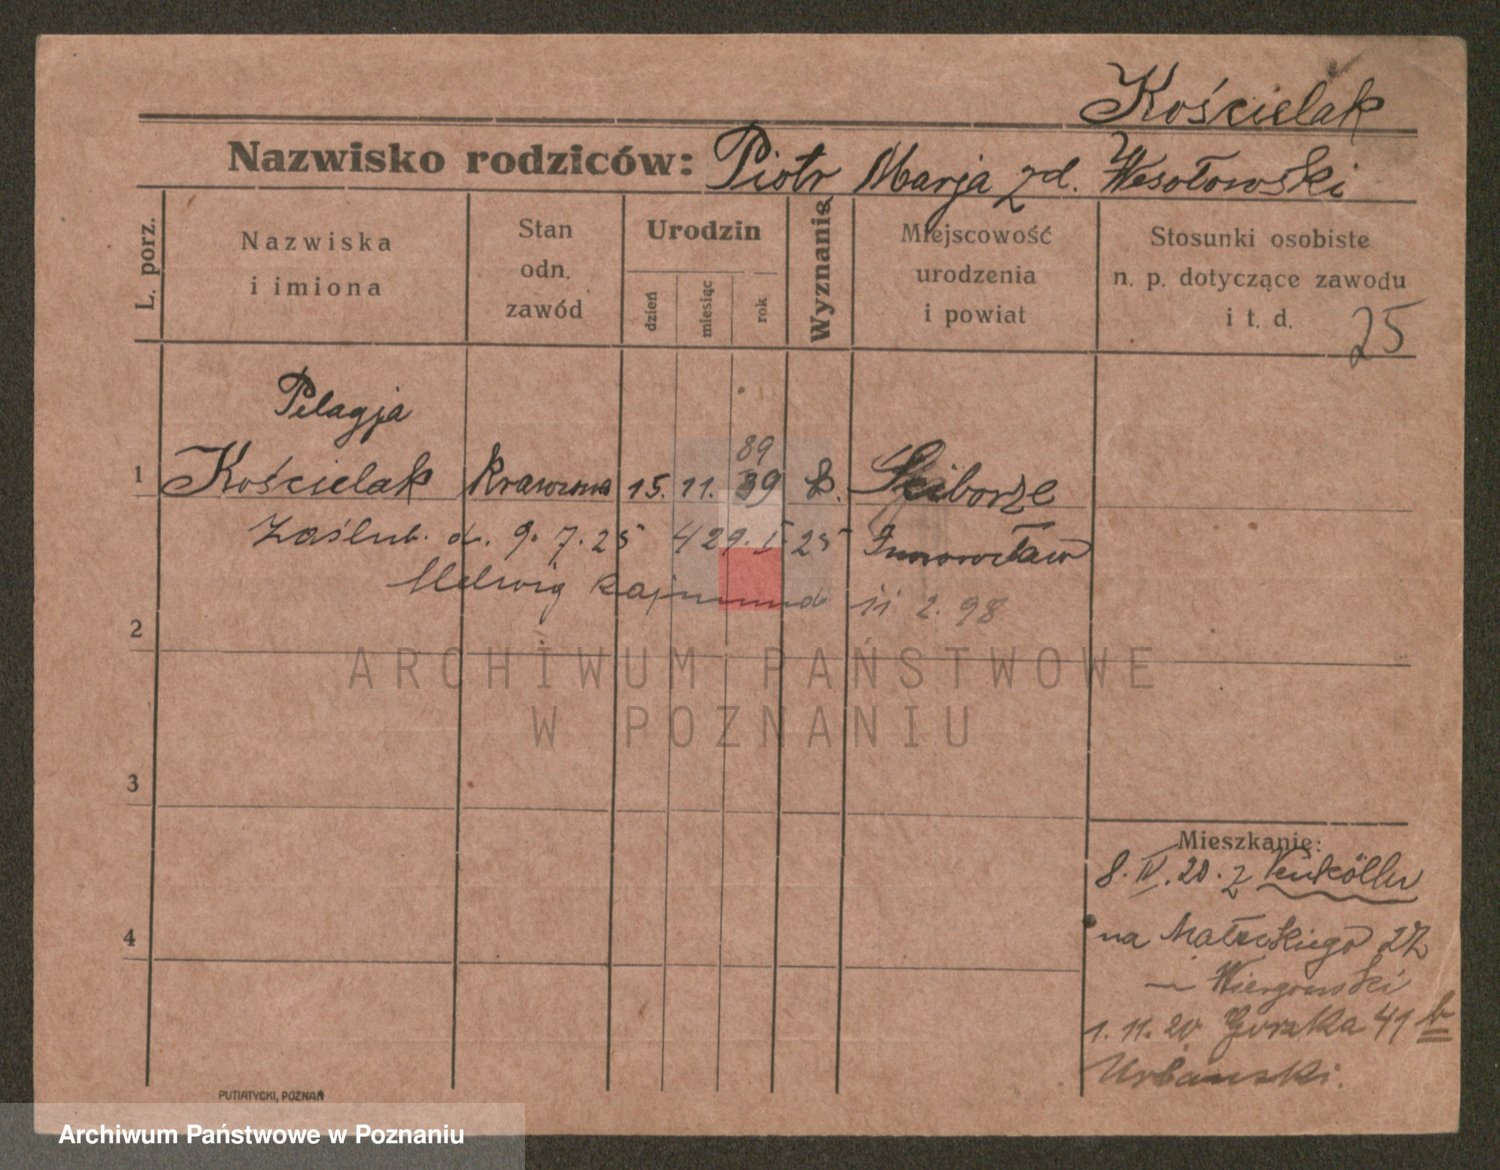 Kościelak
Nazwisko rodziców: Piotr Marja zd. Wesołowski
L. porz.
Nazwiska
i imiona
Stan
odn.
zawód
Urodzin
dzień
miesiąc
rok
Wyznanie
Miejscowość
urodzenia
i powiat
Stosunki osobiste
n. p. dotyczące zawodu
i t. d.
25
Pelagja
89
1 Kościelak Krawcowa 15. 11. 89 k. Ściborze
Zaślub. d. 9. 7. 25 429. I 25 Inowrocław
Helwig Rajmund 11 2. 98
2
3
4
Mieszkanie:
8. IV. 20. z Neukölln
na Małeckiego 27
Wiergowski
1. 11. 20 Gorzka 41 b
Urbanski.
PUTIATYCKI, POZNAŃ
ARCHIWUM PAŃSTWOWE
W POZNANIU
Archiwum Państwowe w Poznaniu